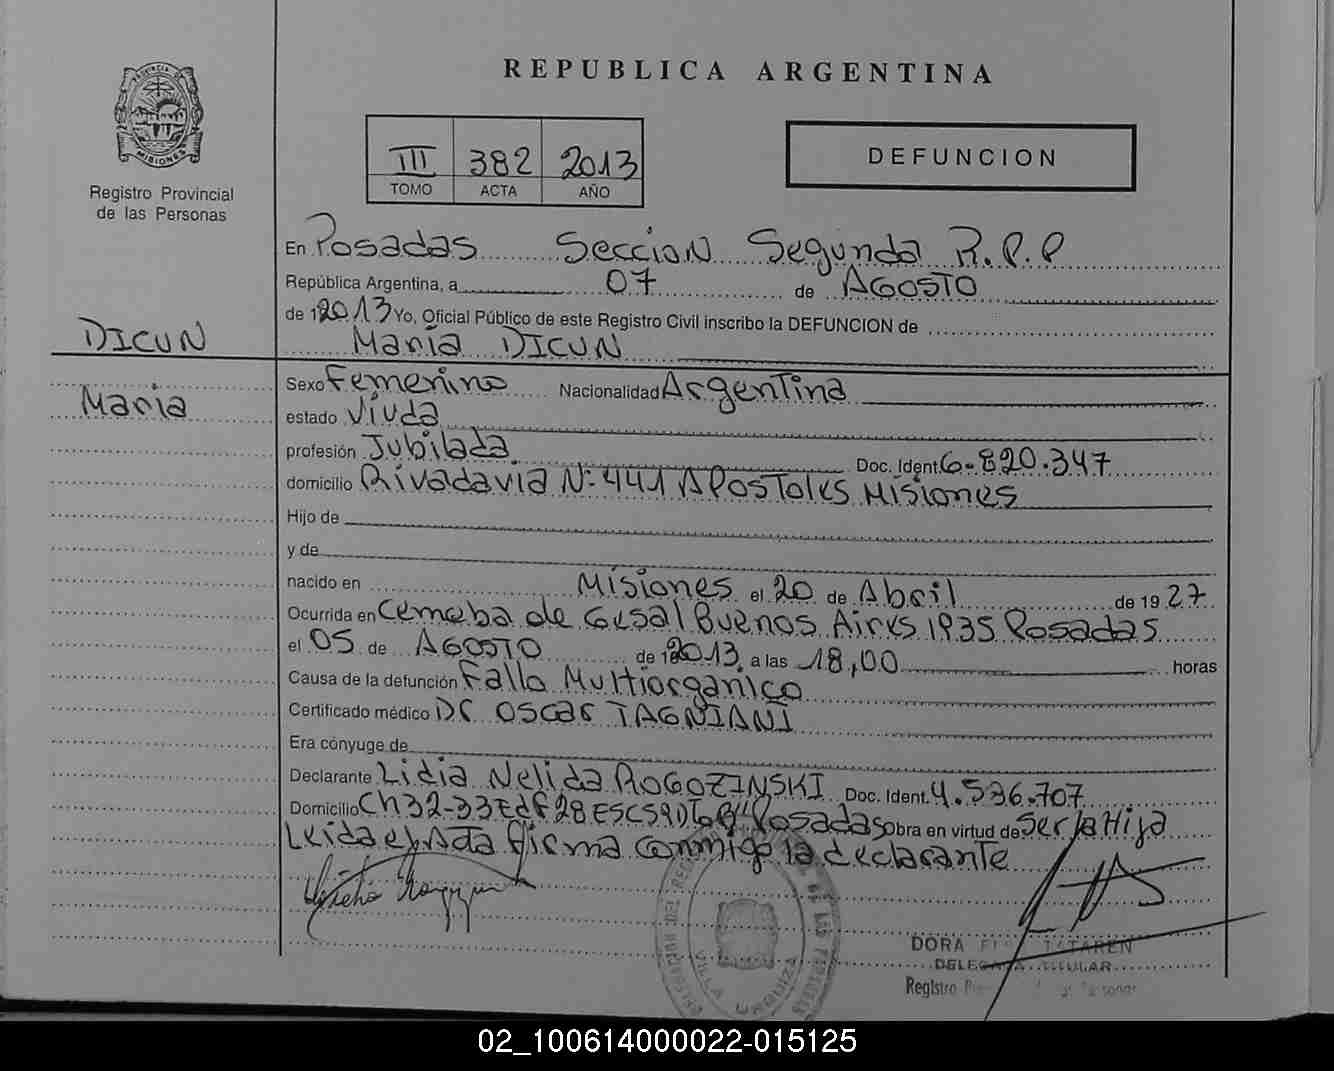 REPUBLICA ARGENTINA
PROVINCIA DE
MISIONES
Registro Provincial
de las Personas
III 382 2013
TOMO ACTA AÑO
DEFUNCION
En Posadas Seccion Segunda R.P.P
República Argentina, a 07 de AGOSTO
de 12013 Yo, Oficial Público de este Registro Civil inscribo la DEFUNCION de
DICUN
Maria DICUN
Maria
Sexo Femenino Nacionalidad Argentina
estado Viuda
profesión Jubilada Doc. Ident. 6.820.347
domicilio Rivadavia Nº 441 APOSTOLES Misiones
Hijo de
y de
nacido en Misiones el 20 de Abril de 19 27
Ocurrida en Buenos Aires 1935 Posadas
el 05 de AGOSTO de 2013 a las 18,00 horas
Causa de la defunción Fallo Multiorganico
Certificado médico Dr OSCAR TAGNIANI
Era cónyuge de
Declarante Lidia Nelida ROGOZINSKI Doc. Ident. 4.536.707
Domicilio Ch32-33 Edf 28 ESCS9 DTO B" Posadas obra en virtud de Ser la Hija
Leida el Acta firma conmigo la declarante
VILLA URQUIZA
DORA TATAREN
DELEGADA TITULAR
Registro
02_100614000022-015125